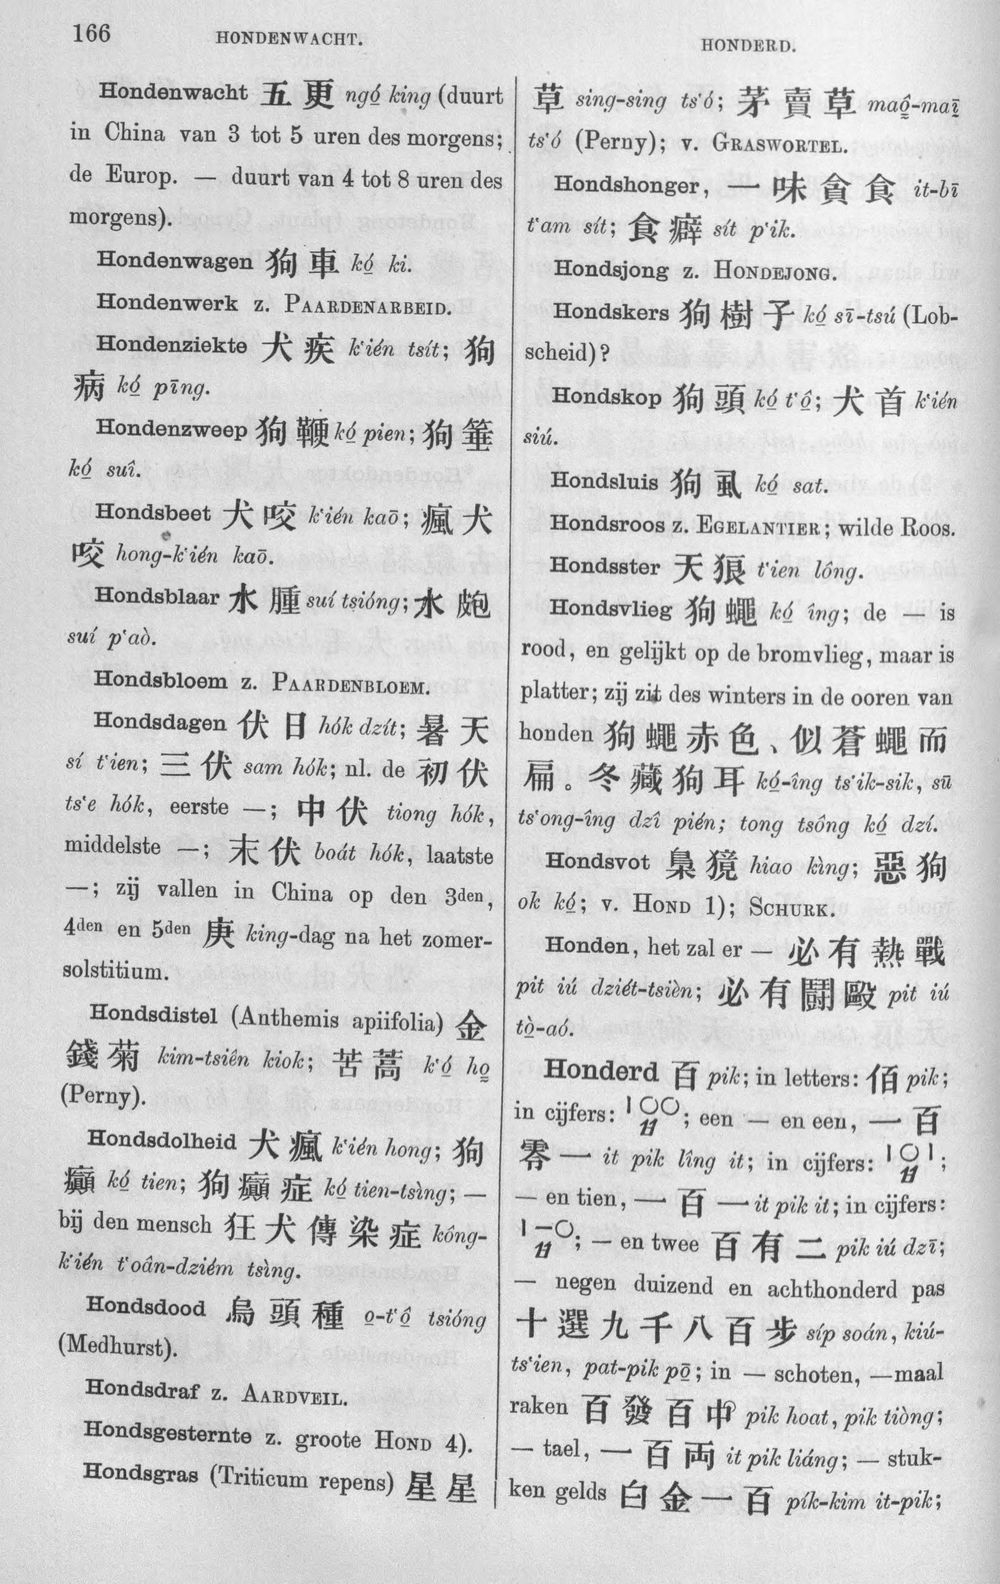 166
HONDENWACHT.
HONDERD.
Hondenwacht 五更 ngó̱ king (duurt
in China van 3 tot 5 uren des morgens;
de Europ. — duurt van 4 tot 8 uren des
morgens).
Hondenwagen 狗車 kó̱ ki.
Hondenwerk z. PAARDENARBEID.
Hondenziekte 犬疾 k‘ién tsít; 狗
病 kó̱ pīng.
Hondenzweep 狗鞭 kó̱ pien; 狗箠
kó̱ suî.
Hondsbeet 犬咬 k‘ién kaō; 瘋犬
咬 hong-k‘ién kaō.
Hondsblaar 水腫 suí tsióng; 水皰
suí p‘aò.
Hondsbloem z. PAARDENBLOEM.
Hondsdagen 伏日 hók dzít; 暑天
sí t‘ien; 三伏 sam hók; nl. de 初伏
ts‘e hók, eerste —; 中伏 tiong hók,
middelste —; 末伏 boát hók, laatste
—; zij vallen in China op den 3den,
4den en 5den 庚 king-dag na het zomer-
solstitium.
Hondsdistel (Anthemis apiifolia) 金
錢菊 kim-tsiên kiok; 苦蒿 k‘ó̱ ho̱
(Perny).
Hondsdolheid 犬瘋 k‘ién hong; 狗
癲 kó̱ tien; 狗癲症 kó̱ tien-tsìng; —
bij den mensch 狂犬傳染症 kông-
k‘ién t‘oân-dziém tsìng.
Hondsdood 烏頭種 o̱-t‘ô̱ tsióng
(Medhurst).
Hondsdraf z. AARDVEIL.
Hondsgesternte z. groote HOND 4).
Hondsgras (Triticum repens) 星星
草 sing-sing ts‘ó; 茅賣草 maô̱-maī̱
ts‘ó (Perny); v. GRASWORTEL.
Hondshonger, 一味貪食 it-bī
t‘am sít; 食癖 sít p‘ik.
Hondsjong z. HONDEJONG.
Hondskers 狗樹子 kó̱ sī-tsú (Lob-
scheid)?
Hondskop 狗頭 kó̱ t‘ô̱; 犬首 k‘ién
siú.
Hondsluis 狗虱 kó̱ sat.
Hondsroos z. EGELANTIER; wilde Roos.
Hondsster 天狼 t‘ien lông.
Hondsvlieg 狗蠅 kó̱ îng; de — is
rood, en gelijkt op de bromvlieg, maar is
platter; zij zit des winters in de ooren van
honden 狗蠅赤色、似蒼蠅而
扁。冬藏狗耳 kó̱-îng ts‘ik-sik, sū
ts‘ong-îng dzî pién; tong tsông kó̱ dzí.
Hondsvot 梟獍 hiao kìng; 惡狗
ok kó̱; v. HOND 1); SCHURK.
Honden, het zal er — 必有熱戰
pit iú dziét-tsièn; 必有鬪毆 pit iú
tò̱-aó.
Honderd 百 pik; in letters: 佰 pik;
in cijfers: 〡〇〇; een — en een, 一百
零一 it pik lîng it; in cijfers: 〡〇〡;
— en tien, 一百一 it pik it; in cijfers:
〡一〇; — en twee 百有二 pik iú dzī;
— negen duizend en achthonderd pas
十選九千八百步 síp soán, kiú-
ts‘ien, pat-pik pō̱; in — schoten, —maal
raken 百發百中 pik hoat, pik tiòng;
— tael, 一百両 it pik liáng; — stuk-
ken gelds 白金一百 pík-kim it-pik;